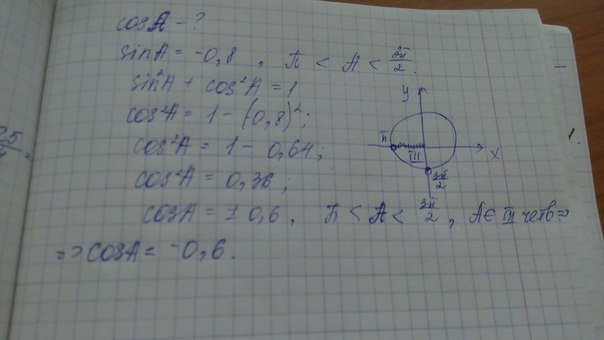 cos A - ?
sin A = -0,8 , П < A < 3π/2 ;
sin²A + cos²A = 1
cos²A = 1 - (0,8)² ;
cos²A = 1 - 0,64 ;
cos²A = 0,36 ;
cos A = ± 0,6 , П < A < 3π/2 , A ∈ III четв =>
=> cos A = -0,6.
y
x
π
III
3π/2
1.